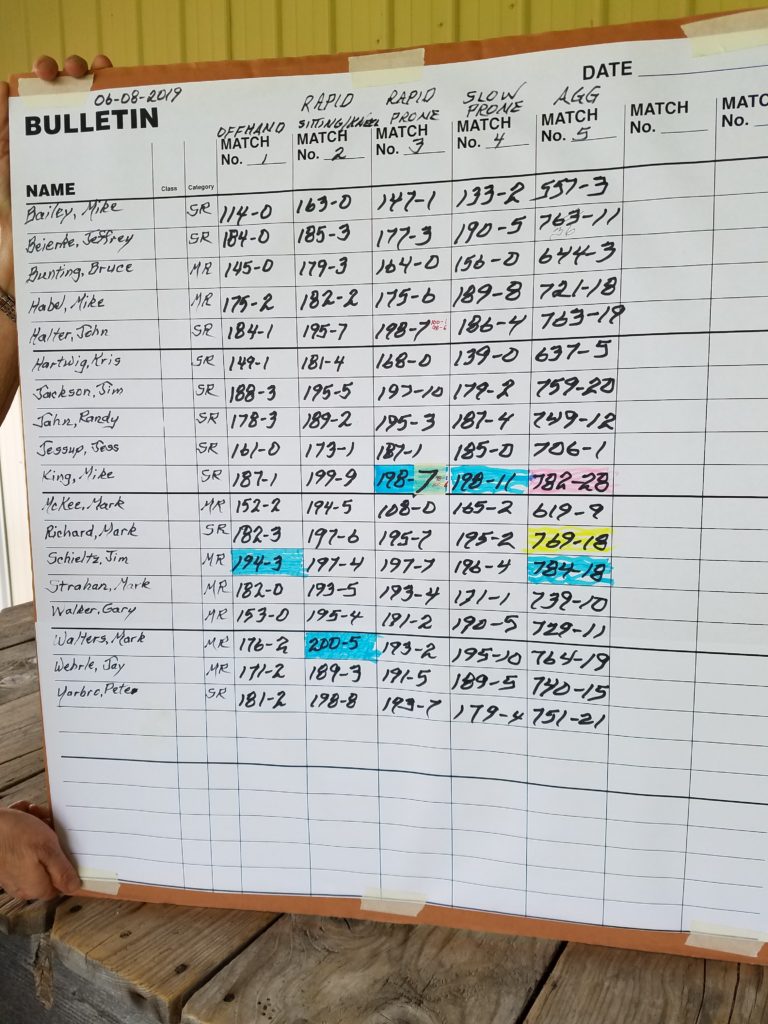 DATE
06-08-2019
RAPID RAPID SLOW AGG
BULLETIN OFFHAND SITTING/KNEEL PRONE PRONE
MATCH MATCH MATCH MATCH MATCH MATCH MATC
No. 1 No. 2 No. 3 No. 4 No. 5 No. No.
NAME Class Category
Bailey, Mike SR 114-0 163-0 147-1 133-2 557-3
Beierke, Jeffrey SR 184-0 185-3 177-3 190-5 763-11
Bunting, Bruce MR 145-0 179-3 164-0 156-0 644-3
Habel, Mike MR 175-2 182-2 175-6 189-8 721-18
Halter, John SR 184-1 195-7 198-7 186-4 763-19
Hartwig, Kris SR 149-1 181-4 168-0 139-0 637-5
Jackson, Jim SR 188-3 195-5 197-10 179-2 759-20
Jahn, Randy SR 178-3 189-2 195-3 187-4 749-12
Jessup, Jess SR 161-0 173-1 187-1 185-0 706-1
King, Mike SR 187-1 199-9 198-7 198-11 782-28
McKee, Mark MR 152-2 194-5 108-0 165-2 619-9
Richard, Mark SR 182-3 197-6 195-7 195-2 769-18
Schieltz, Jim MR 194-3 197-4 197-7 196-4 784-18
Strahan, Mark MR 182-0 193-5 193-4 171-1 739-10
Walker, Gary MR 153-0 195-4 191-2 190-5 729-11
Walters, Mark MR 176-2 200-5 193-2 195-10 764-19
Wehrle, Jay MR 171-2 189-3 191-5 189-5 740-15
Yarbro, Pete SR 181-2 198-8 193-7 179-4 751-21